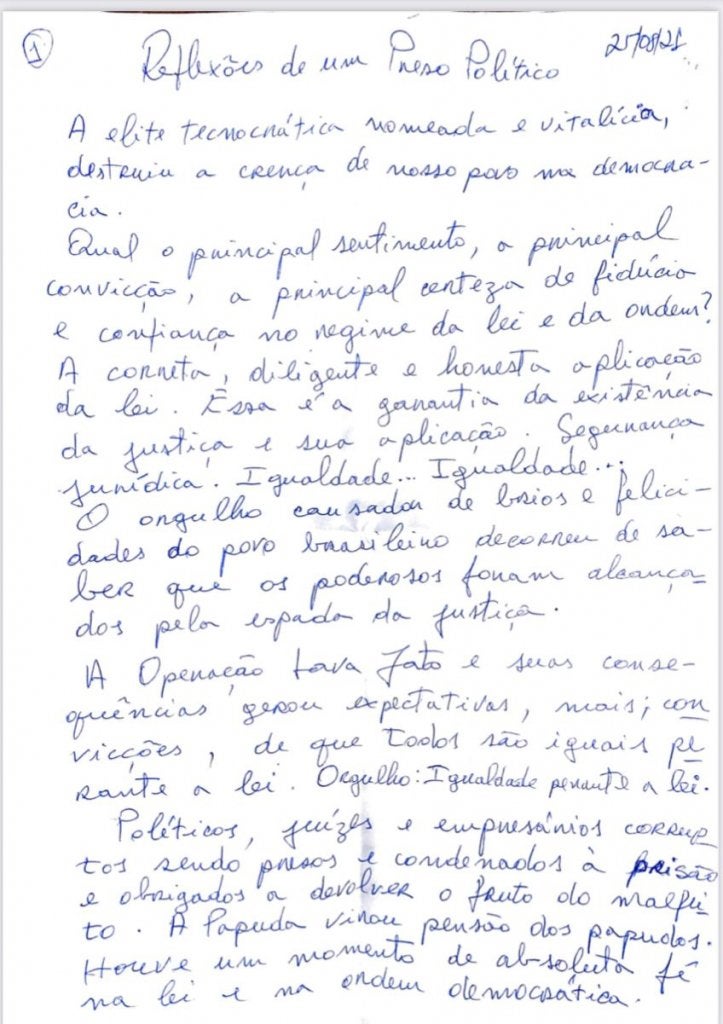 1
25/08/21
Reflexões de um Preso Político
A elite tecnocrática nomeada e vitalícia,
destruiu a crença de nosso povo na democra-
cia.
Qual o principal sentimento, a principal
convicção, a principal certeza de fidúcia
e confiança no regime da lei e da ordem?
A correta, diligente e honesta aplicação
da lei. Essa é a garantia da existência
da justiça e sua aplicação. Segurança
jurídica. Igualdade... Igualdade...
O orgulho causador de brios e felici-
dades do povo brasileiro decorreu de sa-
ber que os poderosos foram alcança-
dos pela espada da justiça.
A Operação Lava Jato e suas conse-
quências gerou expectativas, mais; con
vicções, de que todos são iguais pe
rante a lei. Orgulho: Igualdade perante a lei.
Políticos, juízes e empresários corrup
tos sendo presos e condenados à prisão
e obrigados a devolver o fruto do malfei
to. A Papuda virou pensão dos papudos.
Houve um momento de absoluta fé
na lei e na ordem democrática.